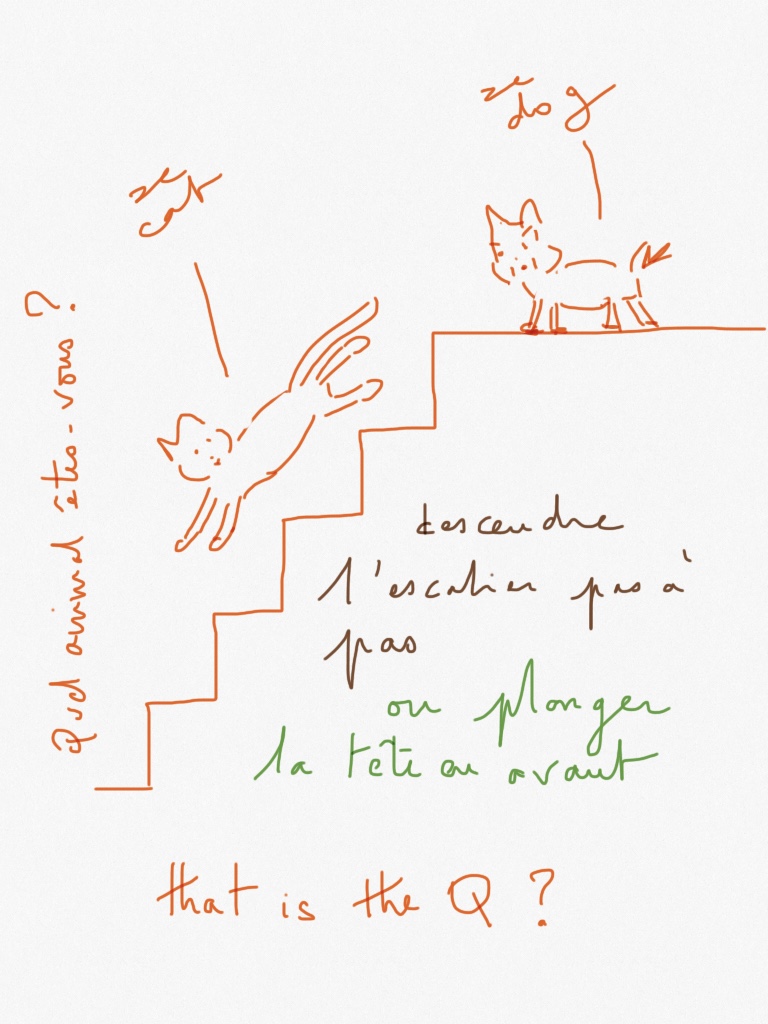 ze
dog
ze
cat
Quel animal êtes-vous ?
descendre
l'escalier pas à
pas
ou plonger
la tête en avant
that is the Q ?